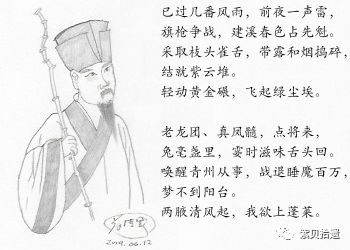 已过几番风雨，前夜一声雷，
旗枪争战，建溪春色占先魁。
采取枝头雀舌，带露和烟捣碎，
结就紫云堆。
轻动黄金碾，飞起绿尘埃。
老龙团、真凤髓，点将来，
兔毫盏里，霎时滋味舌头回。
唤醒青州从事，战退睡魔百万，
梦不到阳台。
两腋清风起，我欲上蓬莱。
2019.06.12
紫贝拾遗